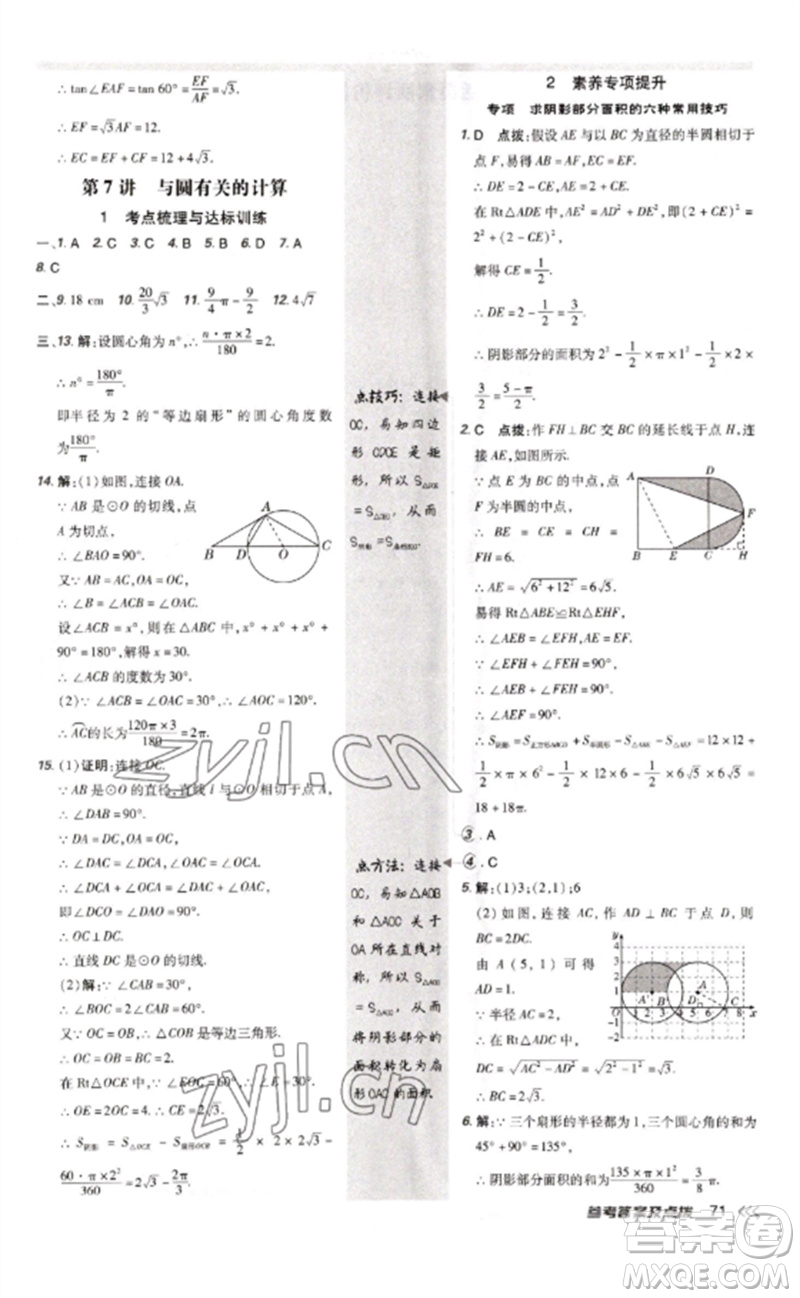 ∴ tan∠EAF = tan 60° = EF/AF = √3.
∴ EF = √3AF = 12.
∴ EC = EF + CF = 12 + 4√3.
第 7 讲 与圆有关的计算
1 考点梳理与达标训练
一、1. A 2. C 3. C 4. B 5. D 6. D 7. A
8. C
二、9. 18 cm 10. 20/3 √3 11. 9/4 π − 9/2 12. 4√7
三、13. 解:设圆心角为 n°,∴ n·π×2/180 = 2.
∴ n° = 180°/π.
即半径为 2 的“等边扇形”的圆心角度数
为 180°/π.
14. 解:(1)如图,连接 OA.
∵ AB 是⊙O 的切线,点
A 为切点,
∴ ∠BAO = 90°.
又∵ AB = AC, OA = OC,
∴ ∠B = ∠ACB = ∠OAC.
设∠ACB = x°,则在△ABC 中, x° + x° + x° +
90° = 180°,解得 x = 30.
∴ ∠ACB 的度数为 30°.
(2)∵ ∠ACB = ∠OAC = 30°, ∴ ∠AOC = 120°.
∴ AC的长为 120π×3/180 = 2π.
15. (1)证明:连接 OC.
∵ AB 是⊙O 的直径,直线 l 与⊙O 相切于点 A,
∴ ∠DAB = 90°.
∵ DA = DC, OA = OC,
∴ ∠DAC = ∠DCA, ∠OAC = ∠OCA.
∴ ∠DCA + ∠OCA = ∠DAC + ∠OAC,
即∠DCO = ∠DAO = 90°.
∴ OC⊥DC.
∴ 直线 DC 是⊙O 的切线.
(2)解:∵ ∠CAB = 30°,
∴ ∠BOC = 2∠CAB = 60°.
又∵ OC = OB, ∴ △COB 是等边三角形.
∴ OC = OB = BC = 2.
在 Rt△OCE 中, ∠CEO = 90° − ∠COE = 30°.
∴ OE = 2OC = 4. ∴ CE = 2√3.
∴ S阴影 = S△OCE − S扇形COB = 1/2 × 2 × 2√3 −
60·π×2²/360 = 2√3 − 2π/3.
点技巧:连接
OC,易知四边
形 CDOE 是矩
形,所以 S△DOE
= S△CEO,从而
S阴影 = S扇形BOC.
点方法:连接
OC,易知△AOB
和△AOC 关于
OA 所在直线对
称,所以 S△AOB
= S△AOC,从而
将阴影部分的
面积转化为扇
形 OAC 的面积
2 素养专项提升
专项 求阴影部分面积的六种常用技巧
1. D 点拨:假设 AE 与以 BC 为直径的半圆相切于
点 F,易得 AB = AF = 2, CE = EF.
∴ DE = 2 − CE, AE = 2 + CE.
在 Rt△ADE 中, AE² = AD² + DE²,即(2 + CE)² =
2² + (2 − CE)²,
解得 CE = 1/2.
∴ DE = 2 − 1/2 = 3/2.
∴ 阴影部分的面积为 2² − 1/2 × π × 1² − 1/2 × 2 ×
3/2 = (5−π)/2.
2. C 点拨:作 FH⊥BC 交 BC 的延长线于点 H,连
接 AE,如图所示.
∵ 点 E 为 BC 的中点,点
F 为半圆的中点,
∴ BE = CE = CH =
FH = 6.
∴ AE = √(6² + 12²) = 6√5.
易得 Rt△ABE≌Rt△EHF.
∴ ∠AEB = ∠EFH, AE = EF.
∵ ∠EFH + ∠FEH = 90°,
∴ ∠AEB + ∠FEH = 90°.
∴ ∠AEF = 90°.
∴ S阴影 = S正方形ABCD + S半圆形 − S△ABE − S△AEF = 12 × 12 +
1/2 × π × 6² − 1/2 × 12 × 6 − 1/2 × 6√5 × 6√5 =
18 + 18π.
③. A
④. C
5. 解:(1)3;(2,1);6
(2)如图,连接 AC,作 AD⊥BC 于点 D,则
BC = 2DC.
由 A(5, 1)可得
AD = 1.
∵ 半径 AC = 2,
∴ 在 Rt△ACD 中,
DC = √(AC² − AD²) = √(2² − 1²) = √3.
∴ BC = 2√3.
6. 解:∵ 三个扇形的半径都为 1,三个圆心角的和为
45° + 90° = 135°,
∴ 阴影部分面积的和为 135×π×1²/360 = 3/8 π.
参考答案及点拨 71
zyjl.cn
zyjl.cn
答案圈
MXQE.COM